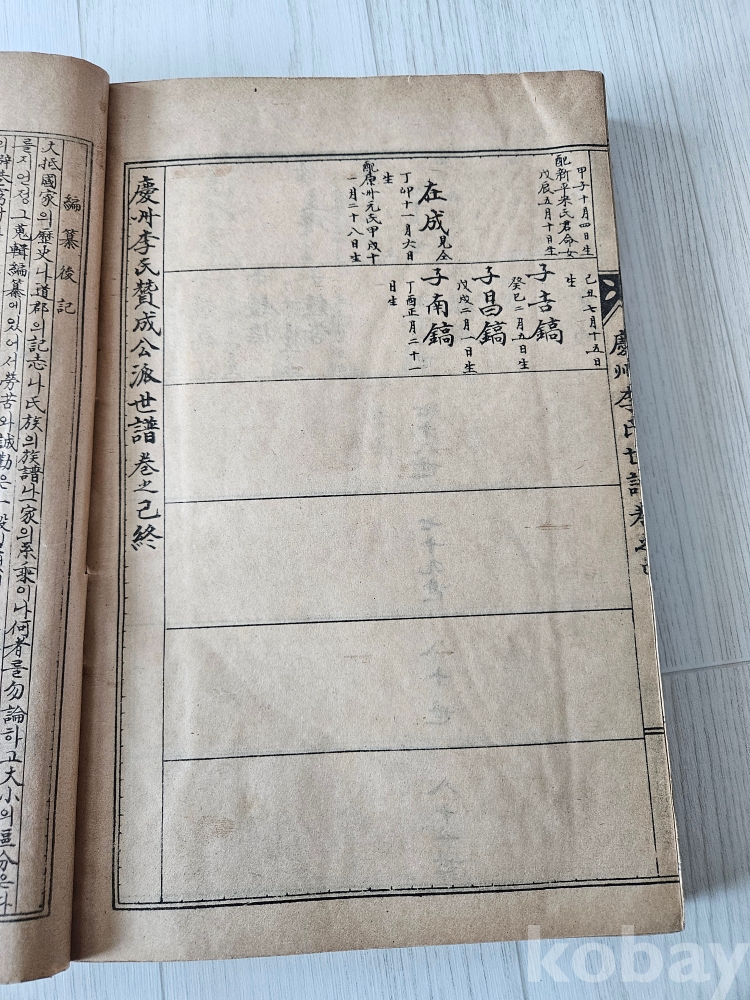 甲子十月四日生
配新平宋氏君命女
戊辰五月十日生
在成見仝
丁卯十一月六日
生
配原州元氏甲戌十
一月二十八日生
己丑七月十五日
生
子吉鎬
癸巳二月五日生
子昌鎬
戊戌二月一日生
子南鎬
丁酉正月二十一
日生
慶州李氏世譜卷之
慶州李氏贊成公派世譜 卷之己終
編纂後記
大抵國家의歷史나道郡의記志나氏族의族譜나一家의系乘이나何者를勿論하고大小의區分은다
를지언정그蒐輯編纂에있어서勞苦와誠勤은一般
kobay